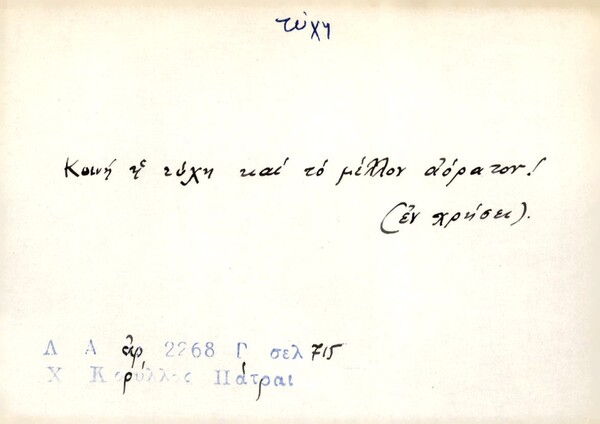 τύχη
Κοινή ἡ τύχη καί τό μέλλον ἀόρατον!
(ἐν χρήσει).
Λ Α ἀρ 2268 Γ σελ 715
Χ Κορύλλος Πάτραι